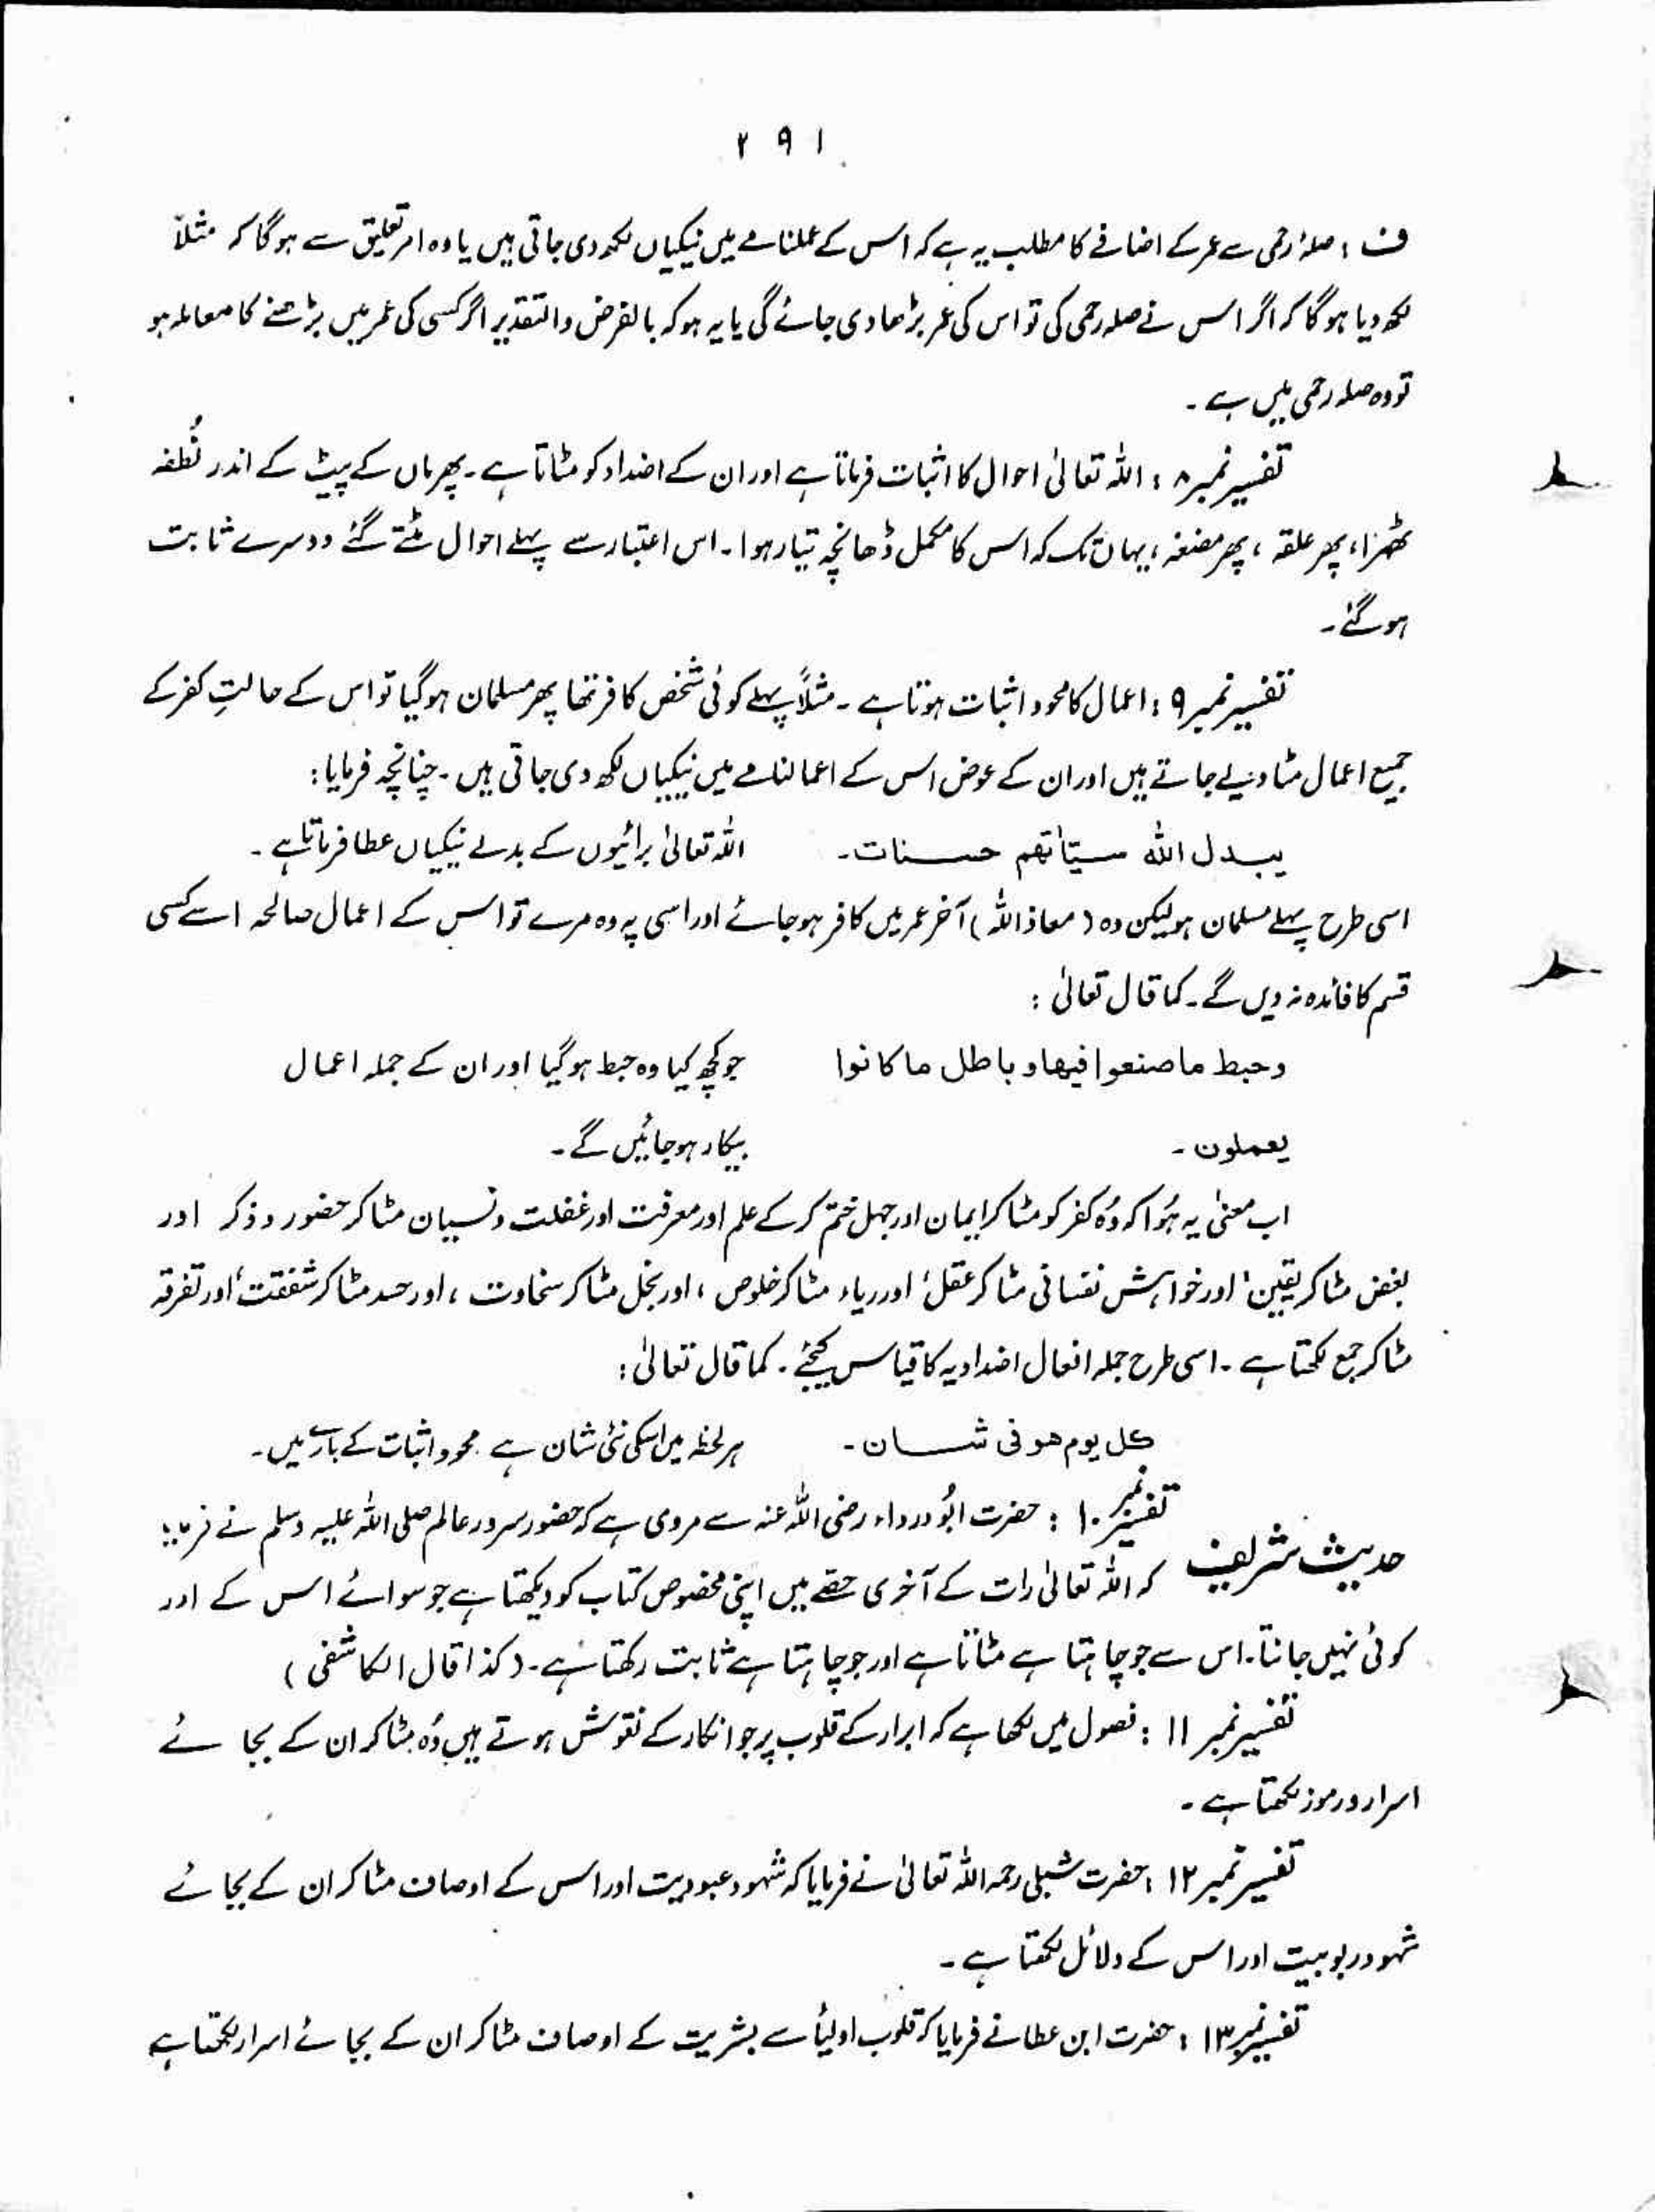 ۲۹۱
ف : صلہ رحمی سے عمر کے اضافے کا مطلب یہ ہے کہ اس کے عملنامے میں نیکیاں لکھ دی جاتی ہیں یا وہ امر تعلیق سے ہوگا کہ مثلاً
لکھ دیا ہوگا کہ اگر اس نے صلہ رحمی کی تو اس کی عمر بڑھا دی جائے گی یا یہ ہو کہ بالفرض والتقدیر اگر کسی کی عمر میں بڑھنے کا معاملہ ہو
تو وہ صلہ رحمی میں ہے۔
تفسیر نمبر ۸ : اللہ تعالیٰ احوال کا اثبات فرماتا ہے اور ان کے اضداد کو مٹاتا ہے۔ پھر ماں کے پیٹ کے اندر نُطفہ
ٹھہرا، پھر علقہ، پھر مضغہ، یہاں تک کہ اس کا مکمل ڈھانچہ تیار ہوا۔ اس اعتبار سے پہلے احوال مٹتے گئے دوسرے ثابت
ہو گئے۔
تفسیر نمبر ۹ : اعمال کا محو و اثبات ہوتا ہے۔ مثلاً پہلے کوئی شخص کافر تھا پھر مسلمان ہوگیا تو اس کے حالتِ کفر کے
جمیع اعمال مٹا دیے جاتے ہیں اور ان کے عوض اس کے اعمالنامے میں نیکیاں لکھ دی جاتی ہیں۔ چنانچہ فرمایا:
یبدل اللہ سیّاٰتھم حسنات۔ اللہ تعالیٰ برائیوں کے بدلے نیکیاں عطا فرماتا ہے۔
اسی طرح پہلے مسلمان ہو لیکن وہ (معاذ اللہ) آخر عمر میں کافر ہو جائے اور اسی پہ وہ مرے تو اس کے اعمال صالحہ اسے کسی
قسم کا فائدہ نہ دیں گے۔ کما قال تعالیٰ :
وحبط ما صنعوا فیھا و باطل ما کانوا جو کچھ کیا وہ حبط ہوگیا اور ان کے جملہ اعمال
یعملون۔ بیکار ہو جائیں گے۔
اب معنیٰ یہ ہُوا کہ وُہ کفر کو مٹا کر ایمان اور جہل ختم کر کے علم اور معرفت اور غفلت و نسیان مٹا کر حضور و ذکر اور
بغض مٹا کر یقین، اور خواہش نفسانی مٹا کر عقل، اور ریاء مٹا کر خلوص، اور بخل مٹا کر سخاوت، اور حسد مٹا کر شفقت، اور تفرقہ
مٹا کر جمع لکھتا ہے۔ اسی طرح جملہ افعال اضدادیہ کا قیاس کیجئے۔ کما قال تعالیٰ :
کل یوم ھو فی شان۔ ہر لحظہ میں اسکی نئی شان ہے محو و اثبات کے بارے میں۔
تفسیر نمبر ۱۰ : حضرت ابُو درداء رضی اللہ عنہ سے مروی ہے کہ حضور سرور عالم صلی اللہ علیہ وسلم نے فرمایا
حدیث شریف کہ اللہ تعالیٰ رات کے آخری حصّے میں اپنی مخصوص کتاب کو دیکھتا ہے جو سوائے اس کے اور
کوئی نہیں جانتا۔ اس سے جو چاہتا ہے مٹاتا ہے اور جو چاہتا ہے ثابت رکھتا ہے۔ (کذا قال الکاشفی)
تفسیر نمبر ۱۱ : فصول میں لکھا ہے کہ ابرار کے قلوب پر جو انکار کے نقوش ہوتے ہیں وُہ مٹا کر ان کے بجائے
اسرار و رموز لکھتا ہے۔
تفسیر نمبر ۱۲ : حضرت شبلی رحمہ اللہ تعالیٰ نے فرمایا کہ شہود عبودیت اور اس کے اوصاف مٹا کر ان کے بجائے
شہود ربوبیت اور اس کے دلائل لکھتا ہے۔
تفسیر نمبر ۱۳ : حضرت ابن عطا نے فرمایا کہ قلوب اولیأ سے بشریت کے اوصاف مٹا کر ان کے بجائے اسرار لکھتا ہے